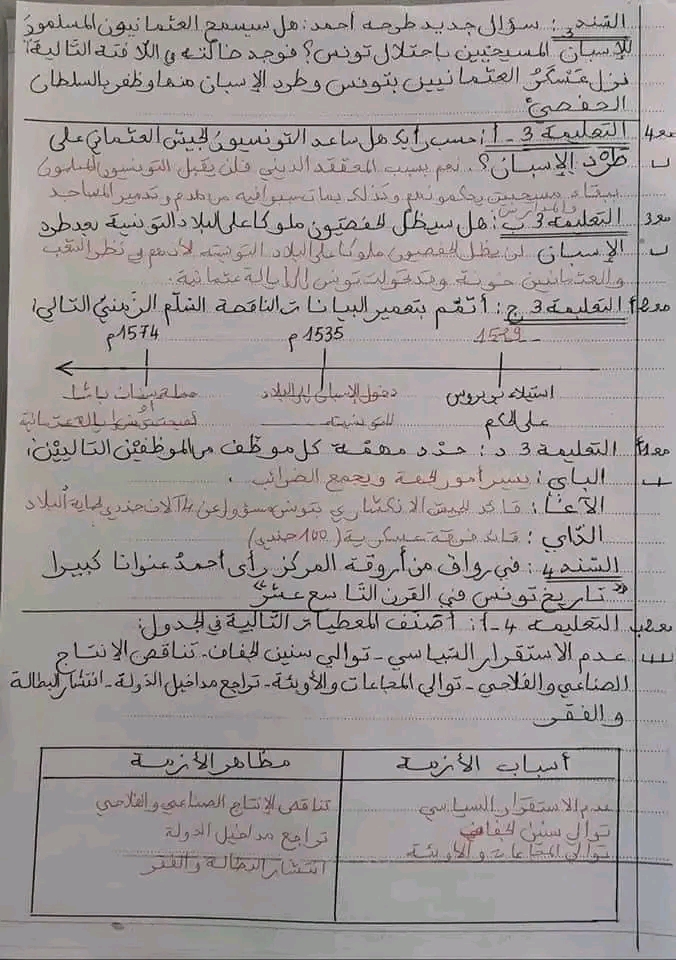 السّند 3: سؤال جديد طرحه أحمد: هل سيسمح العثمانيون المسلمون
للإسبان المسيحيّين باحتلال تونس؟ فوجد ضالّته في اللّافتة التالية:
نزل عسكرُ العثمانيين بتونس وطرد الإسبان منها وظفر بالسلطان
الحفصيّ"
مع4 التعليمة 3 - أ: حسب رأيك هل ساعد التونسيون الجيش العثماني على
طرد الإسبان؟. نعم بسبب المعتقد الديني فلن يقبل التونسيون المسلمون
ببقاء مسيحيين يحكمونهم وكذلك بما تسبوا فيه من هدم وتدمير المساجد
والمدارس
مع3 التعليمة 3 ب: هل سيظلّ الحفصيّون ملوكا على البلاد التونسية بعد طرد
الإسبان لن يظل الحفصيون ملوكا على البلاد التونسية لأنهم في نظر الشعب
والعثمانين خونة وقد تحولت تونس إلى إيالة عثمانية.
التعليمة 3 ج: أتمّم بتعمير البيانات الناقصة السّلّم الزّمنيّ التالي:
1574م 1535م
استيلاء بربروس دخول الإسبان إلى البلاد حملة سنان باشا
على الحكم التونسية
التعليمة 3 د: حدّد مهمّة كلّ موظّف من الموظّفيْن التالييْن:
الباي: يسير أمور المحلة ويجمع الضرائب.
الآغا: قائد الجيش الانكشاري بتونس مسؤول عن 4 آلاف جندي لحماية البلاد
الدّاي: قائد فرقة عسكرية (100 جندي)
السّند 4: في رواق من أروقة المركز رأى أحمد عنوانا كبيرا
"تاريخ تونس في القرن التّاسع عشر"
التعليمة 4-أ: أصنّف المعطيات التالية في الجدول:
عدم الاستقرار السّياسي - توالي سنين الجفاف - تناقص الإنتاج
الصناعي والفلاحي - توالي المجاعات والأوبئة - تراجع مداخيل الدّولة - انتشار البطالة
والفقر
أسباب الأزمة مظاهر الأزمة
عدم الاستقرار السياسي تناقص الإنتاج الصناعي والفلاحي
توالي سنين الجفاف تراجع مداخيل الدولة
توالي المجاعات والأوبئة. انتشار البطالة والفقر